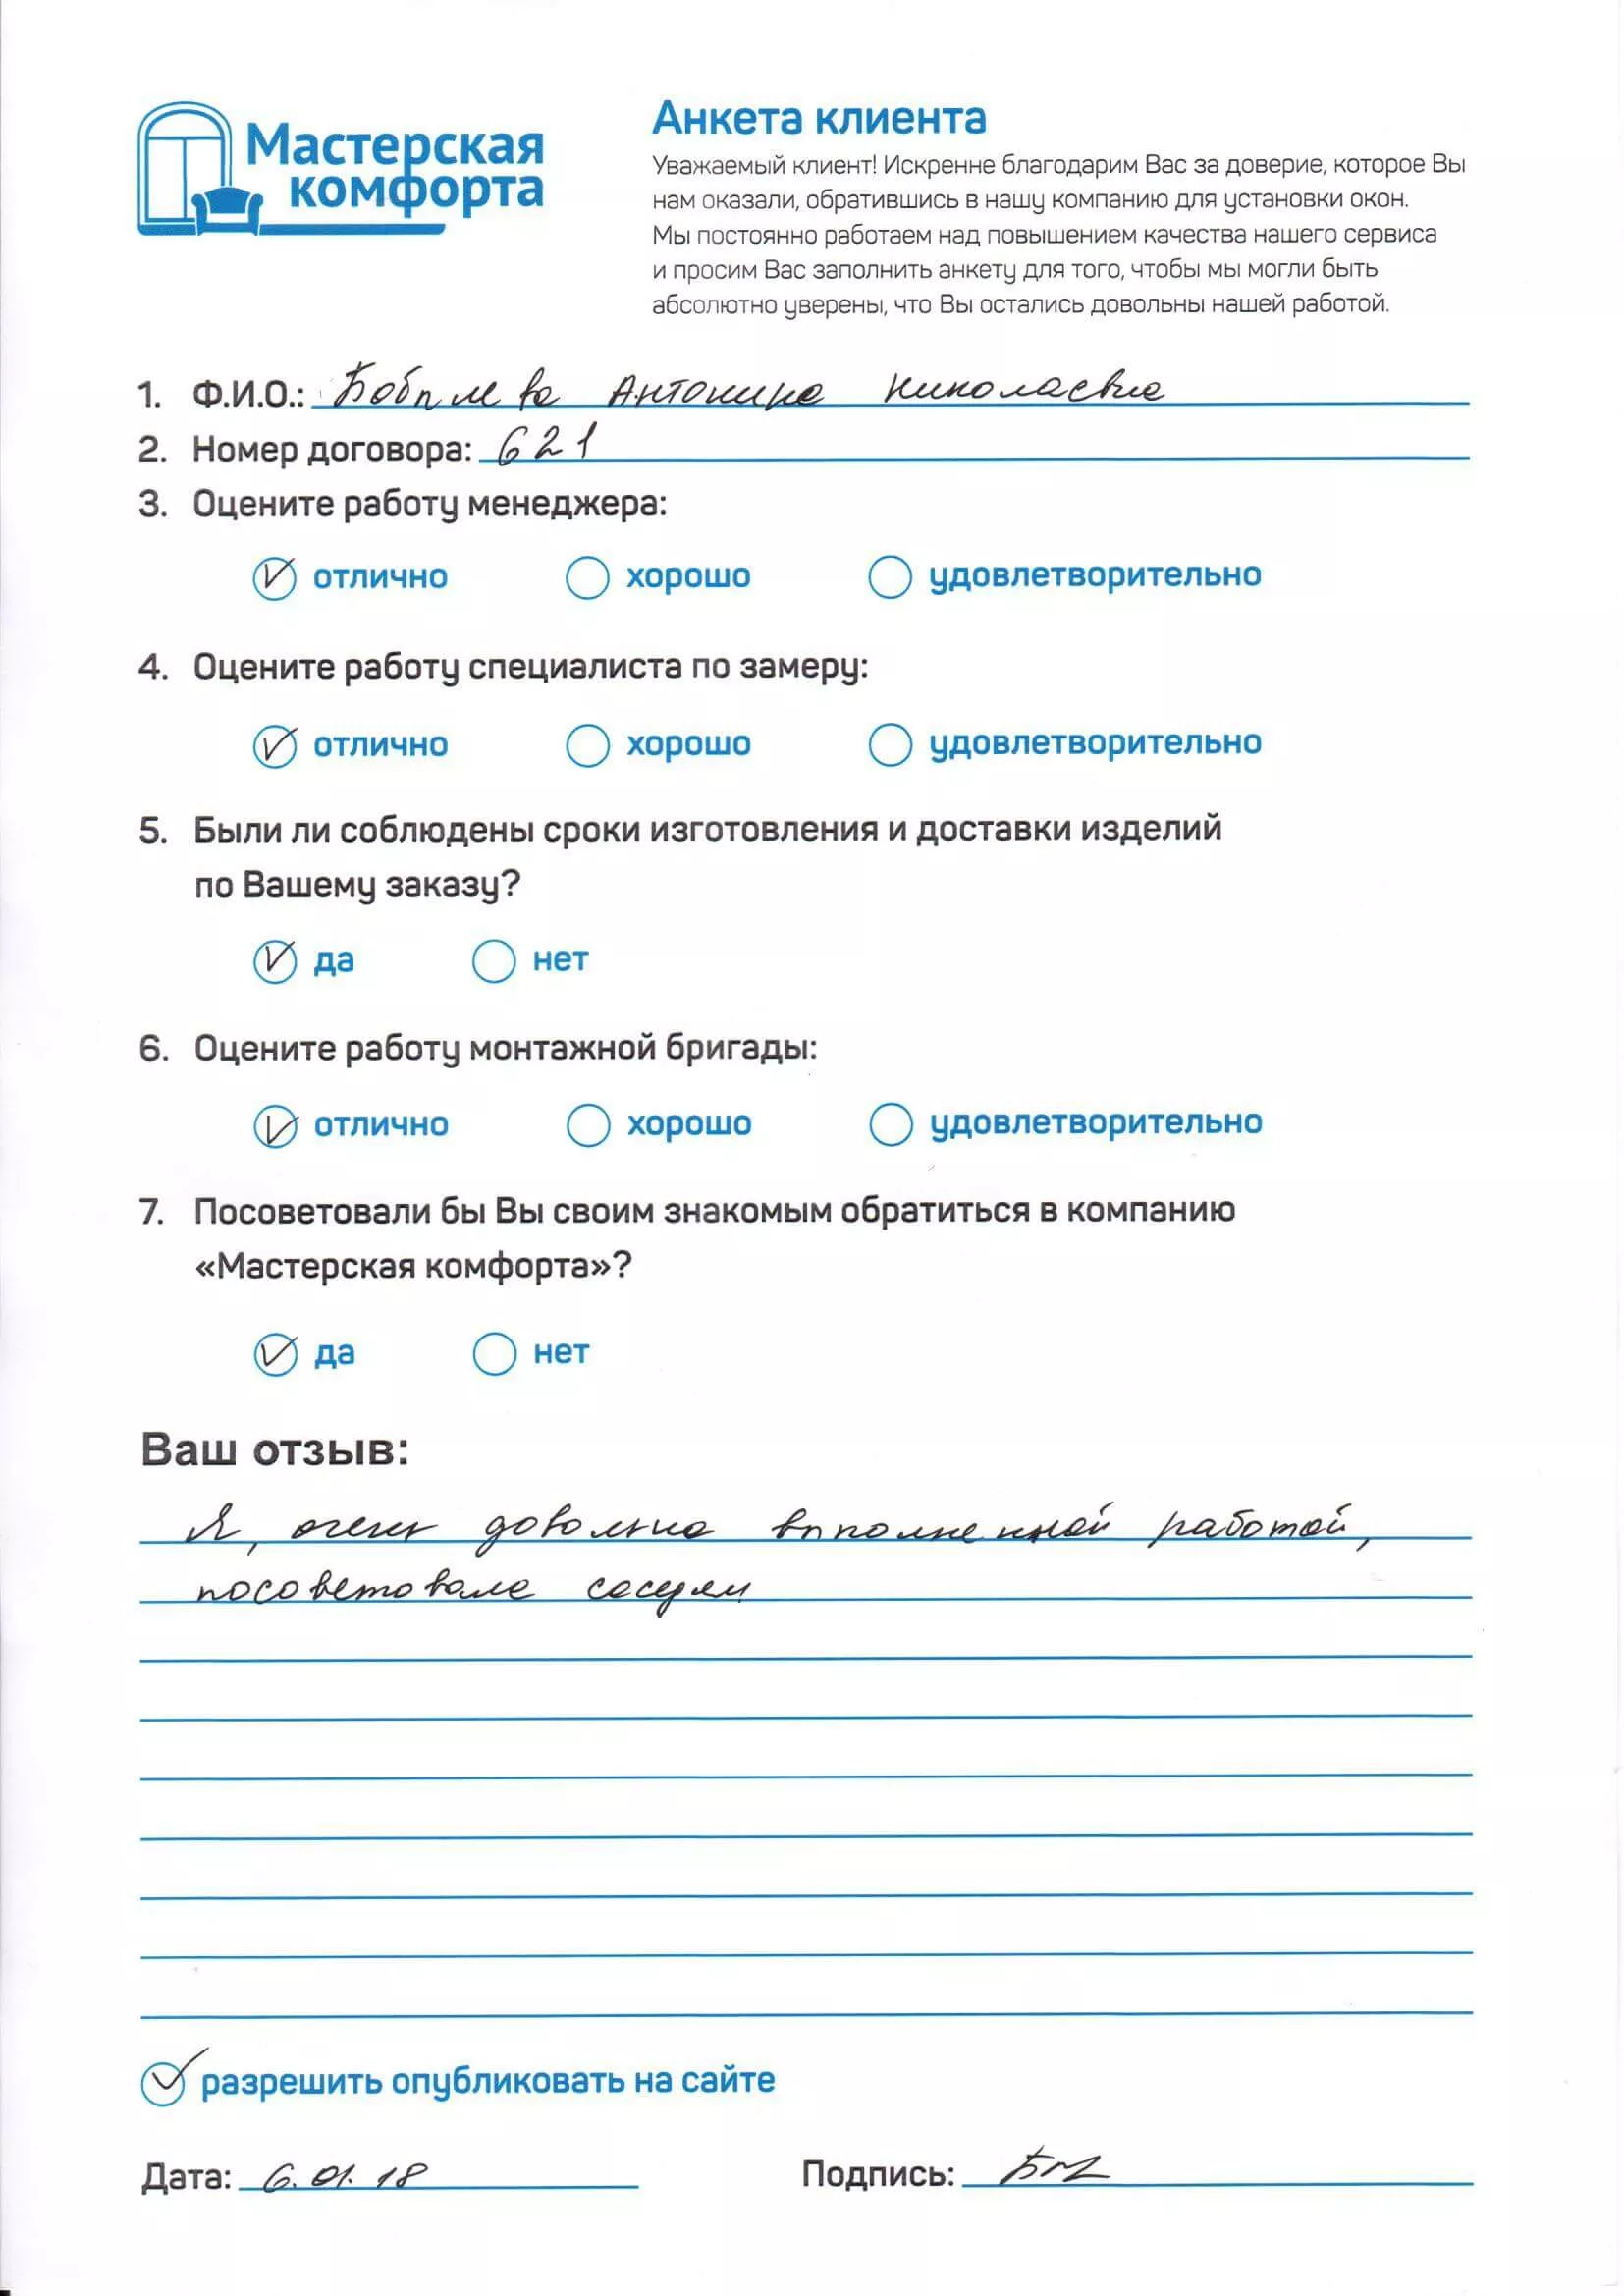 Мастерская
комфорта
Анкета клиента
Уважаемый клиент! Искренне благодарим Вас за доверие, которое Вы
нам оказали, обратившись в нашу компанию для установки окон.
Мы постоянно работаем над повышением качества нашего сервиса
и просим Вас заполнить анкету для того, чтобы мы могли быть
абсолютно уверены, что Вы остались довольны нашей работой.
1. Ф.И.О.: Антонина Николаевна
2. Номер договора: 621
3. Оцените работу менеджера:
отлично хорошо удовлетворительно
4. Оцените работу специалиста по замеру:
отлично хорошо удовлетворительно
5. Были ли соблюдены сроки изготовления и доставки изделий
по Вашему заказу?
да нет
6. Оцените работу монтажной бригады:
отлично хорошо удовлетворительно
7. Посоветовали бы Вы своим знакомым обратиться в компанию
«Мастерская комфорта»?
да нет
Ваш отзыв:
Я, очень довольна выполненной работой,
посоветовала соседям
разрешить опубликовать на сайте
Дата: 6.01.18 Подпись: